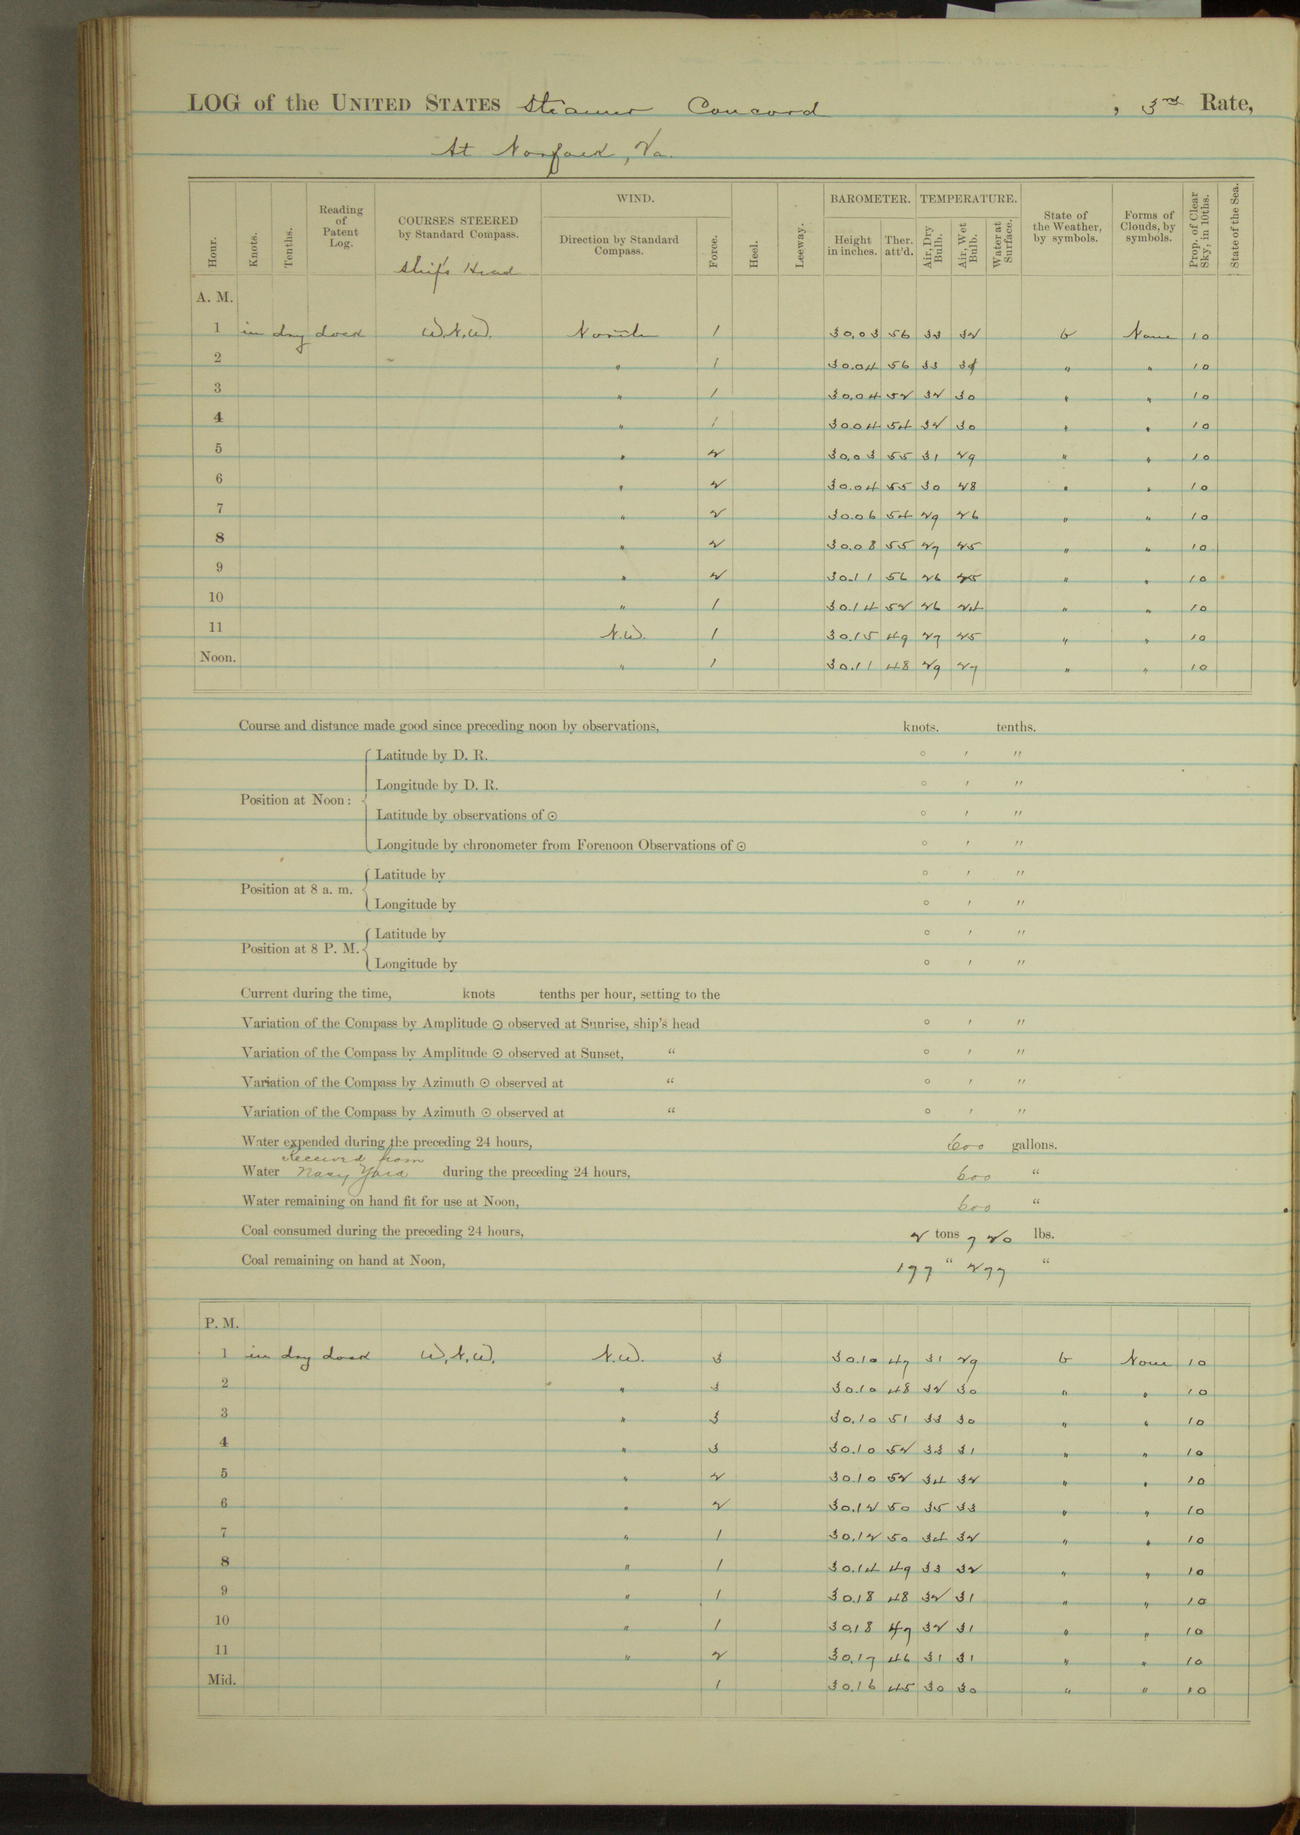 LOG of the UNITED STATES Steamer Concord, 3rd Rate,
At Norfolk, Va.
Hour. Knots. Tenths. Reading of Patent Log. COURSES STEERED by Standard Compass. Ship's Head WIND. Direction by Standard Compass. Force. Heel. Leeway. BAROMETER. Height in inches. Ther. att'd. TEMPERATURE. Air, Dry Bulb. Air, Wet Bulb. Water at Surface. State of the Weather, by symbols. Forms of Clouds, by symbols. Prop. of Clear Sky, in 10ths. State of the Sea.
A. M.
1 in dry dock W.N.W. North 1 30.03 56 33 32 b None 10
2 " 1 30.04 56 33 31 " " 10
3 " 1 30.04 52 32 30 " " 10
4 " 1 30.04 54 32 30 " " 10
5 " 2 30.03 55 31 29 " " 10
6 " 2 30.04 55 30 28 " " 10
7 " 2 30.06 54 29 26 " " 10
8 " 2 30.08 55 27 25 " " 10
9 " 2 30.11 56 26 25 " " 10
10 " 1 30.14 52 26 24 " " 10
11 N.W. 1 30.15 49 27 25 " " 10
Noon. " 1 30.11 48 29 27 " " 10
Course and distance made good since preceding noon by observations, knots. tenths.
Position at Noon: Latitude by D. R. ° ′ ″
Longitude by D. R. ° ′ ″
Latitude by observations of ☉ ° ′ ″
Longitude by chronometer from Forenoon Observations of ☉ ° ′ ″
Position at 8 a. m. Latitude by ° ′ ″
Longitude by ° ′ ″
Position at 8 P. M. Latitude by ° ′ ″
Longitude by ° ′ ″
Current during the time, knots tenths per hour, setting to the
Variation of the Compass by Amplitude ☉ observed at Sunrise, ship's head ° ′ ″
Variation of the Compass by Amplitude ☉ observed at Sunset, " ° ′ ″
Variation of the Compass by Azimuth ☉ observed at " ° ′ ″
Variation of the Compass by Azimuth ☉ observed at " ° ′ ″
Water expended during the preceding 24 hours, 600 gallons.
Water Received from Navy Yard during the preceding 24 hours, 600 "
Water remaining on hand fit for use at Noon, 600 "
Coal consumed during the preceding 24 hours, 2 tons 720 lbs.
Coal remaining on hand at Noon, 177 " 277 "
P. M.
1 in dry dock W.N.W. N.W. 3 30.10 47 31 29 b None 10
2 " 3 30.10 48 32 30 " " 10
3 " 3 30.10 51 33 30 " " 10
4 " 3 30.10 52 33 31 " " 10
5 " 2 30.10 52 34 32 " " 10
6 " 2 30.12 50 35 33 " " 10
7 " 1 30.12 50 34 32 " " 10
8 " 1 30.14 49 33 32 " " 10
9 " 1 30.18 48 32 31 " " 10
10 " 1 30.18 47 32 31 " " 10
11 " 2 30.17 46 31 31 " " 10
Mid. 1 30.16 45 30 30 " " 10